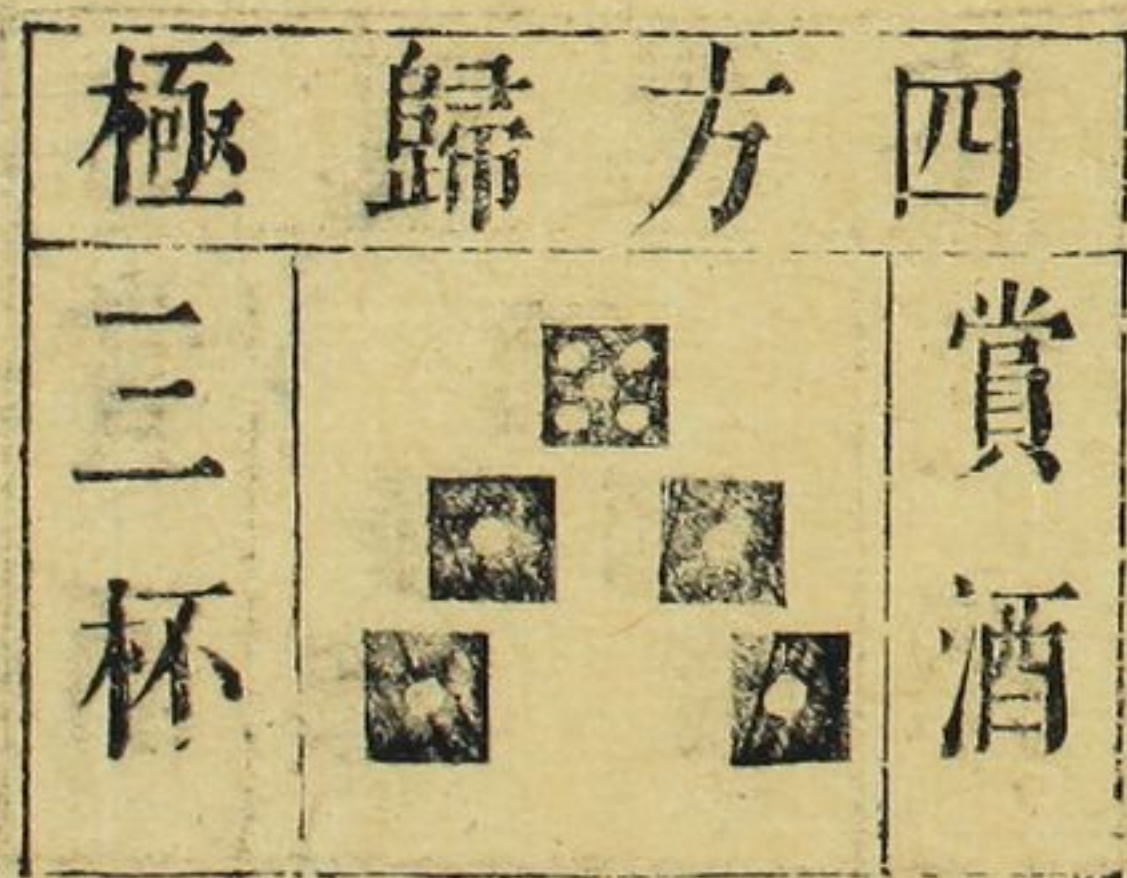 四方歸極
賞酒
三杯